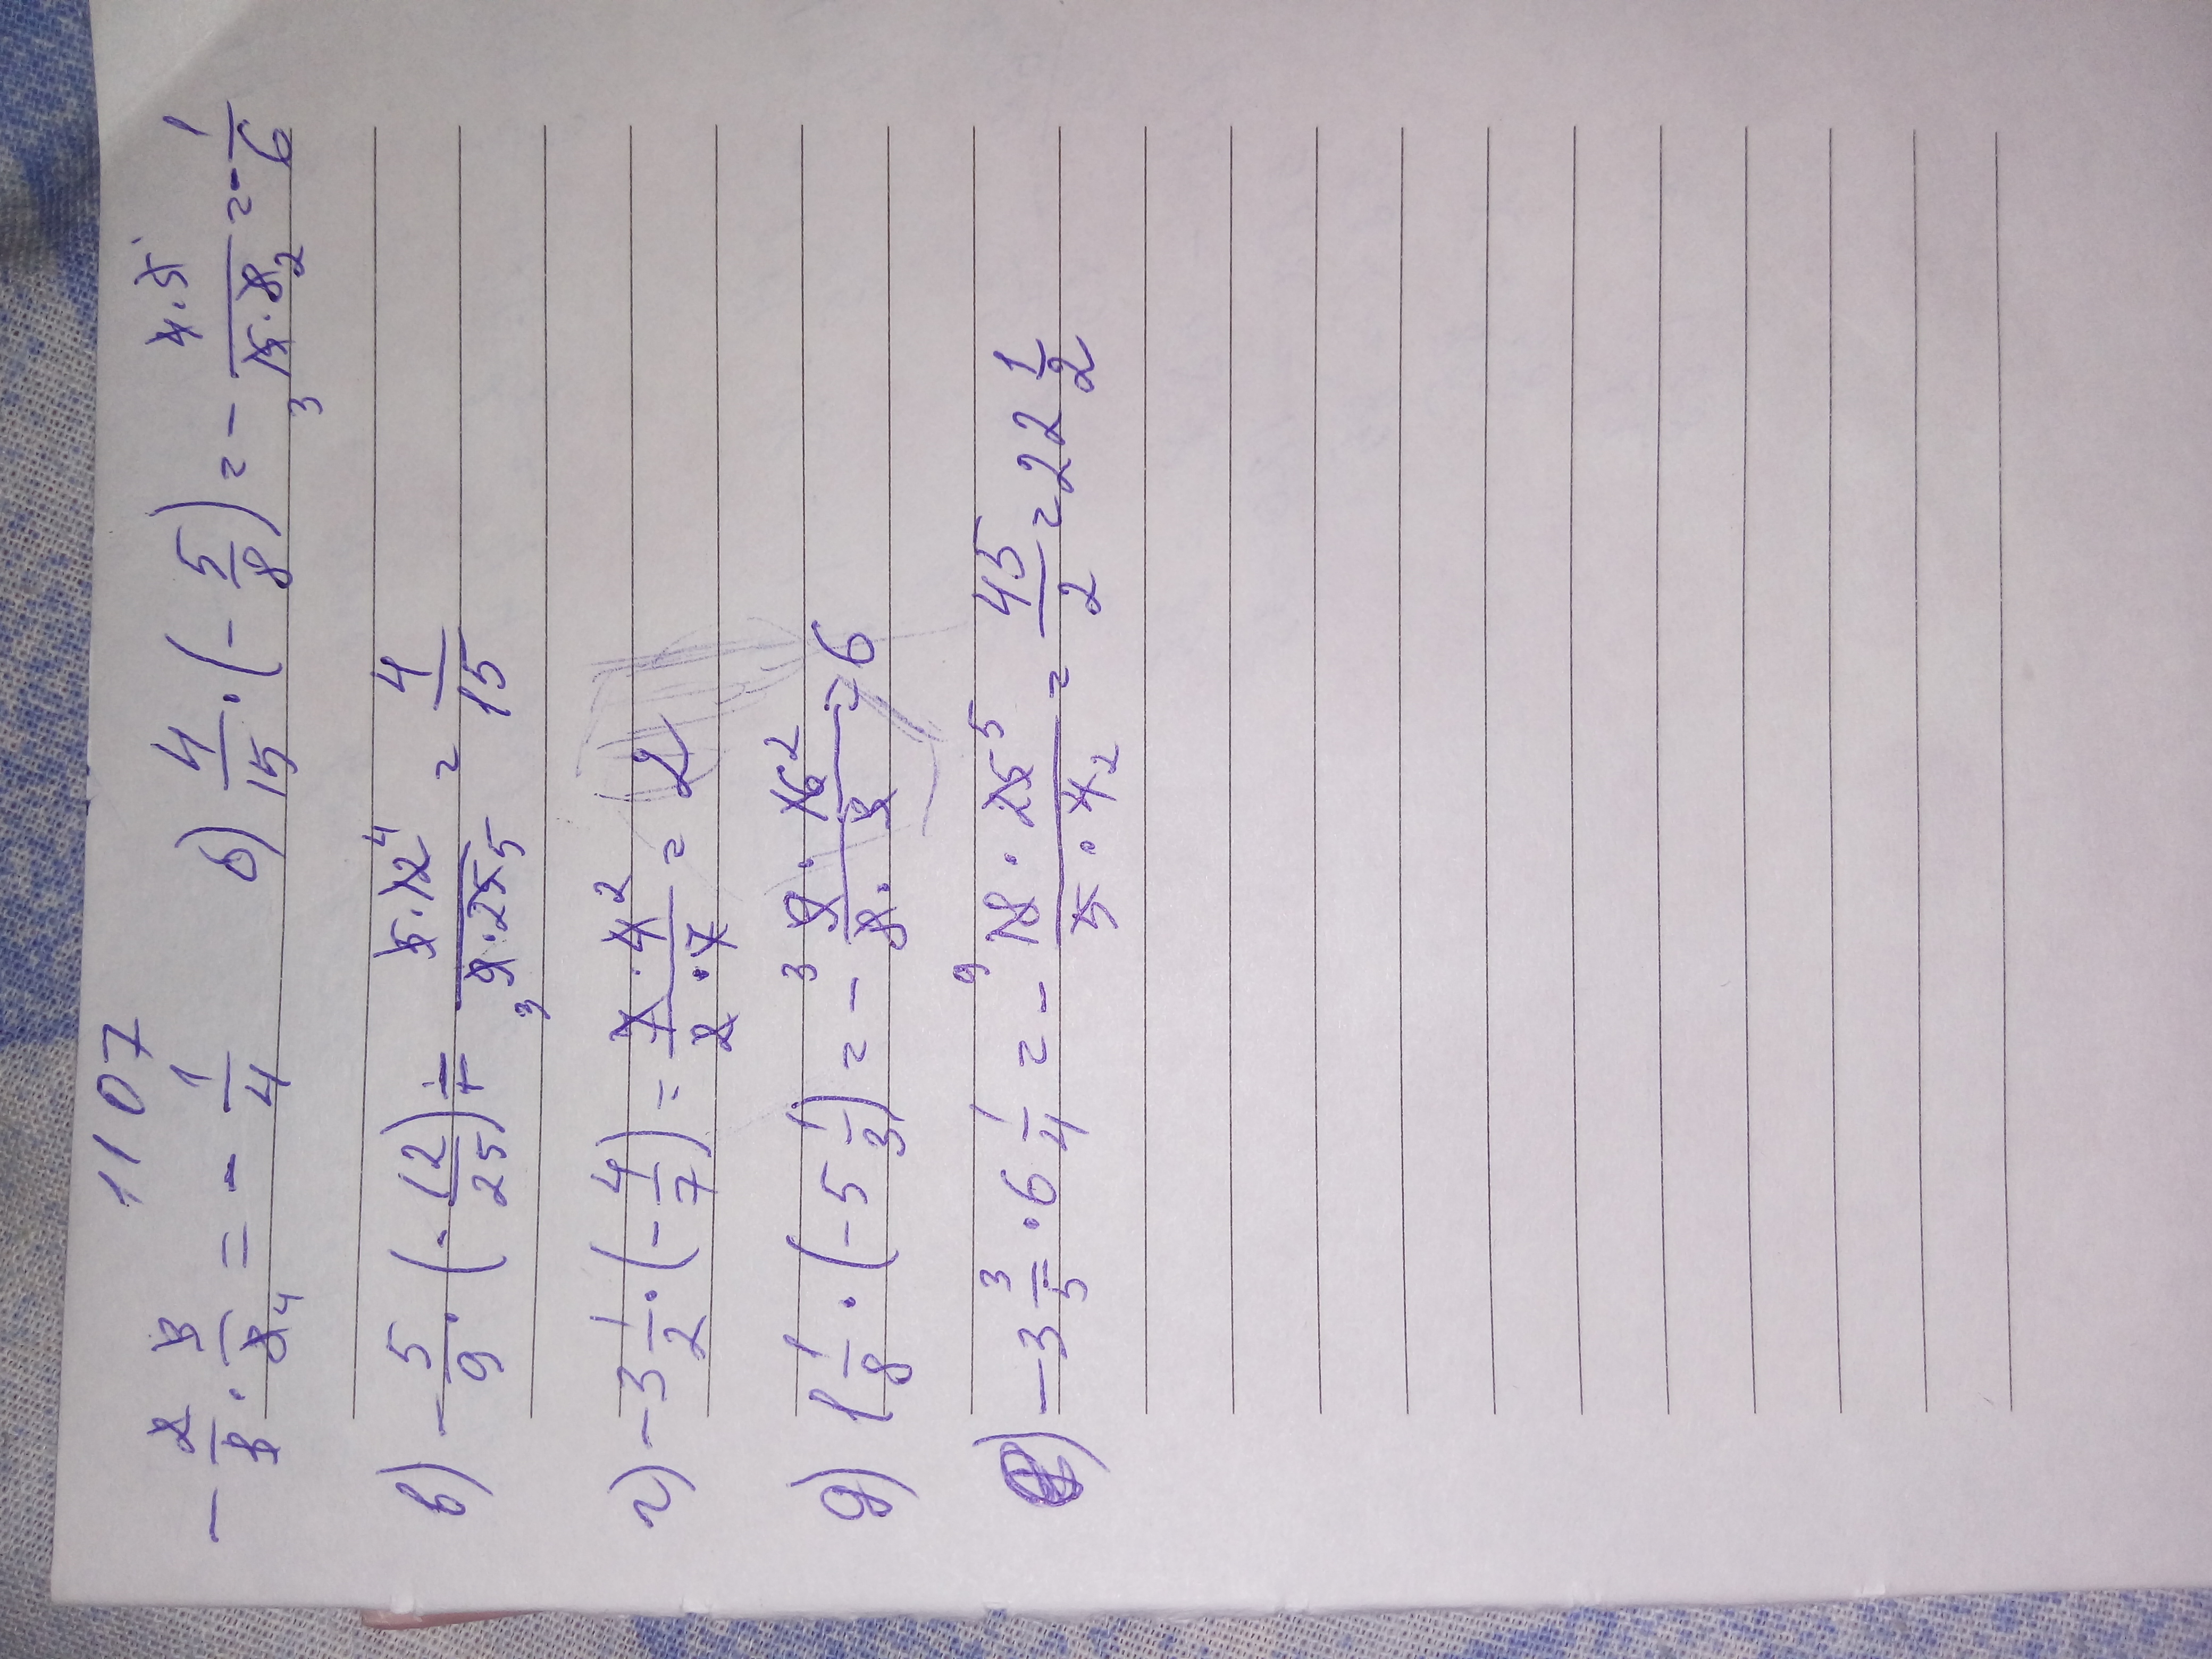 1107
- 2/3 · 3/8 4 = - 1/4 б) 4/15 · (- 5/8) = - 4·5/15·8 3 2 = - 1/6
в) - 5/9 · (- 12/25) = + 5·12 4/9·25 3 5 = 4/15
г) -3 1/2 · (- 4/7) = 7·4 2/2·7 = 2
д) 1 1/8 · (-5 1/3) = - 3 9·16 2/8·3 = -6
е) -3 3/5 · 6 1/4 = - 9 18·25 5/5·4 2 = 45/2 = 22 1/2